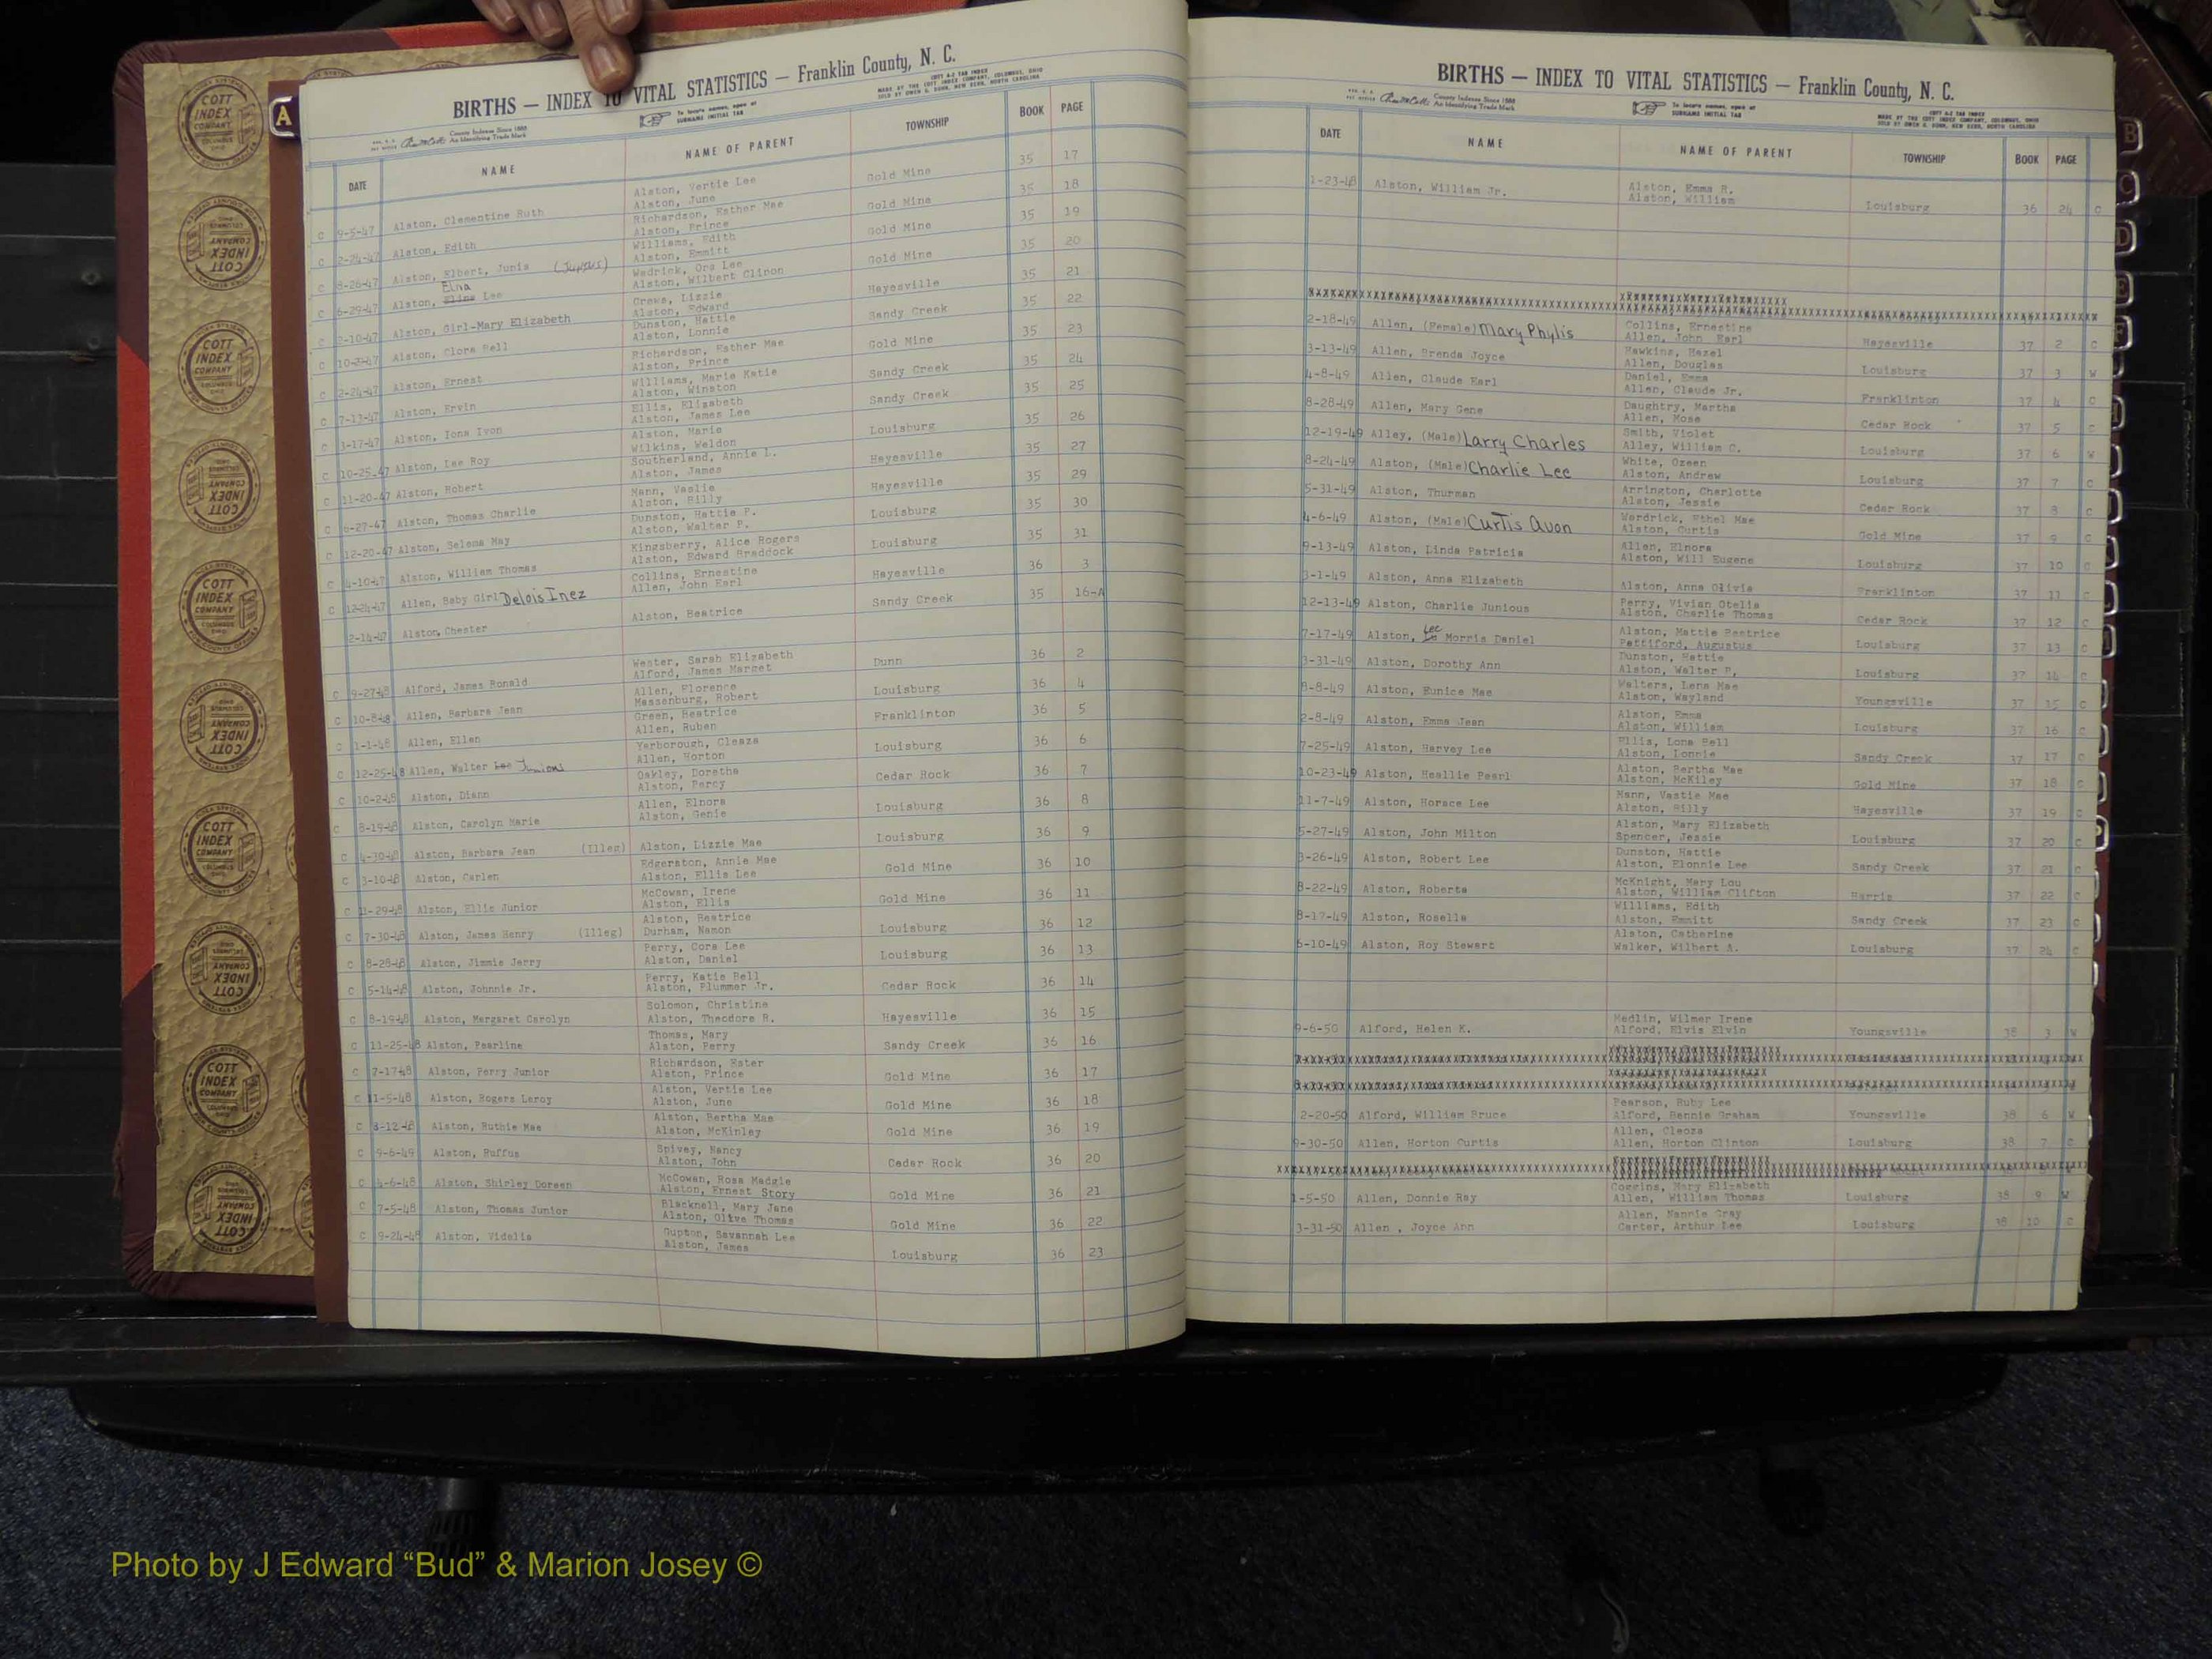 BIRTHS — INDEX TO VITAL STATISTICS — Franklin County, N. C.
To locate names, open at
SURNAME INITIAL TAB
MADE BY THE COTT INDEX COMPANY, COLUMBUS, OHIO
SOLD BY OWEN G. DUNN, NEW BERN, NORTH CAROLINA
County Indexes Since 1888
An Identifying Trade Mark
DATE NAME NAME OF PARENT TOWNSHIP BOOK PAGE
Alston, Vertie Lee
C 9-5-47 Alston, Clementine Ruth Alston, June Gold Mine 35 17
Richardson, Esther Mae
C 2-24-47 Alston, Edith Alston, Prince Gold Mine 35 18
Williams, Edith
C 8-26-47 Alston, Elbert, Junis (Junous) Alston, Emmitt Gold Mine 35 19
Elna
Wedrick, Ora Lee
C 6-29-47 Alston, Eline Lee Alston, Wilbert Clinon Gold Mine 35 20
Crews, Lizzie
C 2-10-47 Alston, Girl-Mary Elizabeth Alston, Edward Hayesville 35 21
Dunston, Hattie
C 10-2-47 Alston, Clora Bell Alston, Lonnie Sandy Creek 35 22
Richardson, Esther Mae
C 2-24-47 Alston, Ernest Alston, Prince Gold Mine 35 23
Williams, Marie Katie
C 7-13-47 Alston, Ervin Alston, Winston Sandy Creek 35 24
Ellis, Elizabeth
C 3-17-47 Alston, Iona Ivon Alston, James Lee Sandy Creek 35 25
Alston, Marie
C 10-25-47 Alston, Lee Roy Wilkins, Weldon Louisburg 35 26
Southerland, Annie L.
C 11-20-47 Alston, Robert Alston, James Hayesville 35 27
Mann, Vaslie
C 6-27-47 Alston, Thomas Charlie Alston, Billy Hayesville 35 29
Dunston, Hattie P.
C 12-20-47 Alston, Selena May Alston, Walter P. Louisburg 35 30
Kingsberry, Alice Rogers
C 4-10-47 Alston, William Thomas Alston, Edward Braddock Louisburg 35 31
Collins, Ernestine
C 12-24-47 Allen, Baby Girl Delois Inez Allen, John Earl Hayesville 36 3
2-14-47 Alston, Chester Alston, Beatrice Sandy Creek 35 16-A
Wester, Sarah Elizabeth
C 9-27-48 Alford, James Ronald Alford, James Marget Dunn 36 2
Allen, Florence
C 10-8-48 Allen, Barbara Jean Massenburg, Robert Louisburg 36 4
Green, Beatrice
C 1-1-48 Allen, Ellen Allen, Ruben Franklinton 36 5
Yarborough, Cleaza
C 12-25-48 Allen, Walter Lee Junious Allen, Horton Louisburg 36 6
Oakley, Dorethe
C 10-2-48 Alston, Diann Alston, Percy Cedar Rock 36 7
Allen, Elnora
C 8-19-48 Alston, Carolyn Marie Alston, Genie Louisburg 36 8
C 4-30-48 Alston, Barbara Jean (Illeg) Alston, Lizzie Mae Louisburg 36 9
Edgerston, Annie Mae
C 3-10-48 Alston, Carlen Alston, Ellis Lee Gold Mine 36 10
McCowan, Irene
C 11-29-48 Alston, Ellis Junior Alston, Ellis Gold Mine 36 11
Alston, Beatrice
C 7-30-48 Alston, James Henry (Illeg) Durham, Namon Louisburg 36 12
Perry, Cora Lee
C 8-28-48 Alston, Jimmie Jerry Alston, Daniel Louisburg 36 13
Perry, Katie Bell
C 5-14-48 Alston, Johnnie Jr. Alston, Plummer Jr. Cedar Rock 36 14
Solomon, Christine
C 8-19-48 Alston, Margaret Carolyn Alston, Theodore R. Hayesville 36 15
Thomas, Mary
C 11-25-48 Alston, Pearline Alston, Perry Sandy Creek 36 16
Richardson, Ester
C 7-17-48 Alston, Perry Junior Alston, Prince Gold Mine 36 17
Alston, Vertie Lee
C 11-5-48 Alston, Rogers Leroy Alston, June Gold Mine 36 18
Alston, Bertha Mae
C 3-12-48 Alston, Ruthie Mae Alston, McKinley Gold Mine 36 19
Spivey, Nancy
C 9-6-49 Alston, Ruffus Alston, John Cedar Rock 36 20
McCowan, Rosa Madgie
C 4-6-48 Alston, Shirley Doreen Alston, Ernest Story Gold Mine 36 21
Blacknell, Mary Jane
C 7-5-48 Alston, Thomas Junior Alston, Olive Thomas Gold Mine 36 22
Gupton, Savannah Lee
C 9-24-48 Alston, Videlia Alston, James Louisburg 36 23
BIRTHS — INDEX TO VITAL STATISTICS — Franklin County, N. C.
County Indexes Since 1888
An Identifying Trade Mark
To locate names, open at
SURNAME INITIAL TAB
MADE BY THE COTT INDEX COMPANY, COLUMBUS, OHIO
SOLD BY OWEN G. DUNN, NEW BERN, NORTH CAROLINA
DATE NAME NAME OF PARENT TOWNSHIP BOOK PAGE
1-23-48 Alston, William Jr. Alston, Emma R.
Alston, William Louisburg 36 24 C
2-18-49 Allen, (Female) Mary Phylis Collins, Ernestine
Allen, John Earl Hayesville 37 2 C
3-13-49 Allen, Brenda Joyce Hawkins, Hazel
Allen, Douglas Louisburg 37 3 W
4-8-49 Allen, Claude Earl Daniel, Emma
Allen, Claude Jr. Franklinton 37 4 C
8-28-49 Allen, Mary Gene Daughtry, Martha
Allen, Mose Cedar Rock 37 5 C
12-19-49 Alley, (Male) Larry Charles Smith, Violet
Alley, William C. Louisburg 37 6 W
8-24-49 Alston, (Male) Charlie Lee White, Ozeen
Alston, Andrew Louisburg 37 7 C
5-31-49 Alston, Thurman Arrington, Charlotte
Alston, Jessie Cedar Rock 37 8 C
4-6-49 Alston, (Male) Curtis Avon Werdrick, Ethel Mae
Alston, Curtis Gold Mine 37 9 C
9-13-49 Alston, Linda Patricia Allen, Elnora
Alston, Will Eugene Louisburg 37 10 C
3-1-49 Alston, Anna Elizabeth Alston, Anna Olivia Franklinton 37 11 C
12-13-49 Alston, Charlie Junious Perry, Vivian Otelia
Alston, Charlie Thomas Cedar Rock 37 12 C
7-17-49 Alston, Lee Morris Daniel Alston, Mattie Beatrice
Pettiford, Augustus Louisburg 37 13 C
3-31-49 Alston, Dorothy Ann Dunston, Hattie
Alston, Walter P. Louisburg 37 14 C
8-8-49 Alston, Eunice Mae Walters, Lena Mae
Alston, Wayland Youngsville 37 15 C
2-8-49 Alston, Emma Jean Alston, Emma
Alston, William Louisburg 37 16 C
7-25-49 Alston, Harvey Lee Ellis, Lona Bell
Alston, Lonnie Sandy Creek 37 17 C
10-23-49 Alston, Heallie Pearl Alston, Bertha Mae
Alston, McKiley Gold Mine 37 18 C
11-7-49 Alston, Horace Lee Mann, Vastie Mae
Alston, Billy Hayesville 37 19 C
5-27-49 Alston, John Milton Alston, Mary Elizabeth
Spencer, Jessie Louisburg 37 20 C
3-26-49 Alston, Robert Lee Dunston, Hattie
Alston, Elonnie Lee Sandy Creek 37 21 C
8-22-49 Alston, Roberta McKnight, Mary Lou
Alston, William Clifton Harris 37 22 C
8-17-49 Alston, Roselle Williams, Edith
Alston, Emmitt Sandy Creek 37 23 C
6-10-49 Alston, Roy Stewart Alston, Catherine
Walker, Wilbert A. Louisburg 37 24 C
Medlin, Wilmer Irene
9-6-50 Alford, Helen K. Alford, Elvis Elvin Youngsville 38 3 W
Pearson, Ruby Lee
2-20-50 Alford, William Bruce Alford, Bennie Graham Youngsville 38 6 W
Allen, Cleoza
9-30-50 Allen, Horton Curtis Allen, Horton Clinton Louisburg 38 7 C
Coggins, Mary Elizabeth
1-5-50 Allen, Donnie Ray Allen, William Thomas Louisburg 38 9 W
Allen, Nannie Gray
3-31-50 Allen , Joyce Ann Carter, Arthur Lee Louisburg 38 10 C
A
B
C
D
E
F
COTT
INDEX
COMPANY
COLUMBUS
OHIO
Photo by J Edward “Bud” & Marion Josey ©